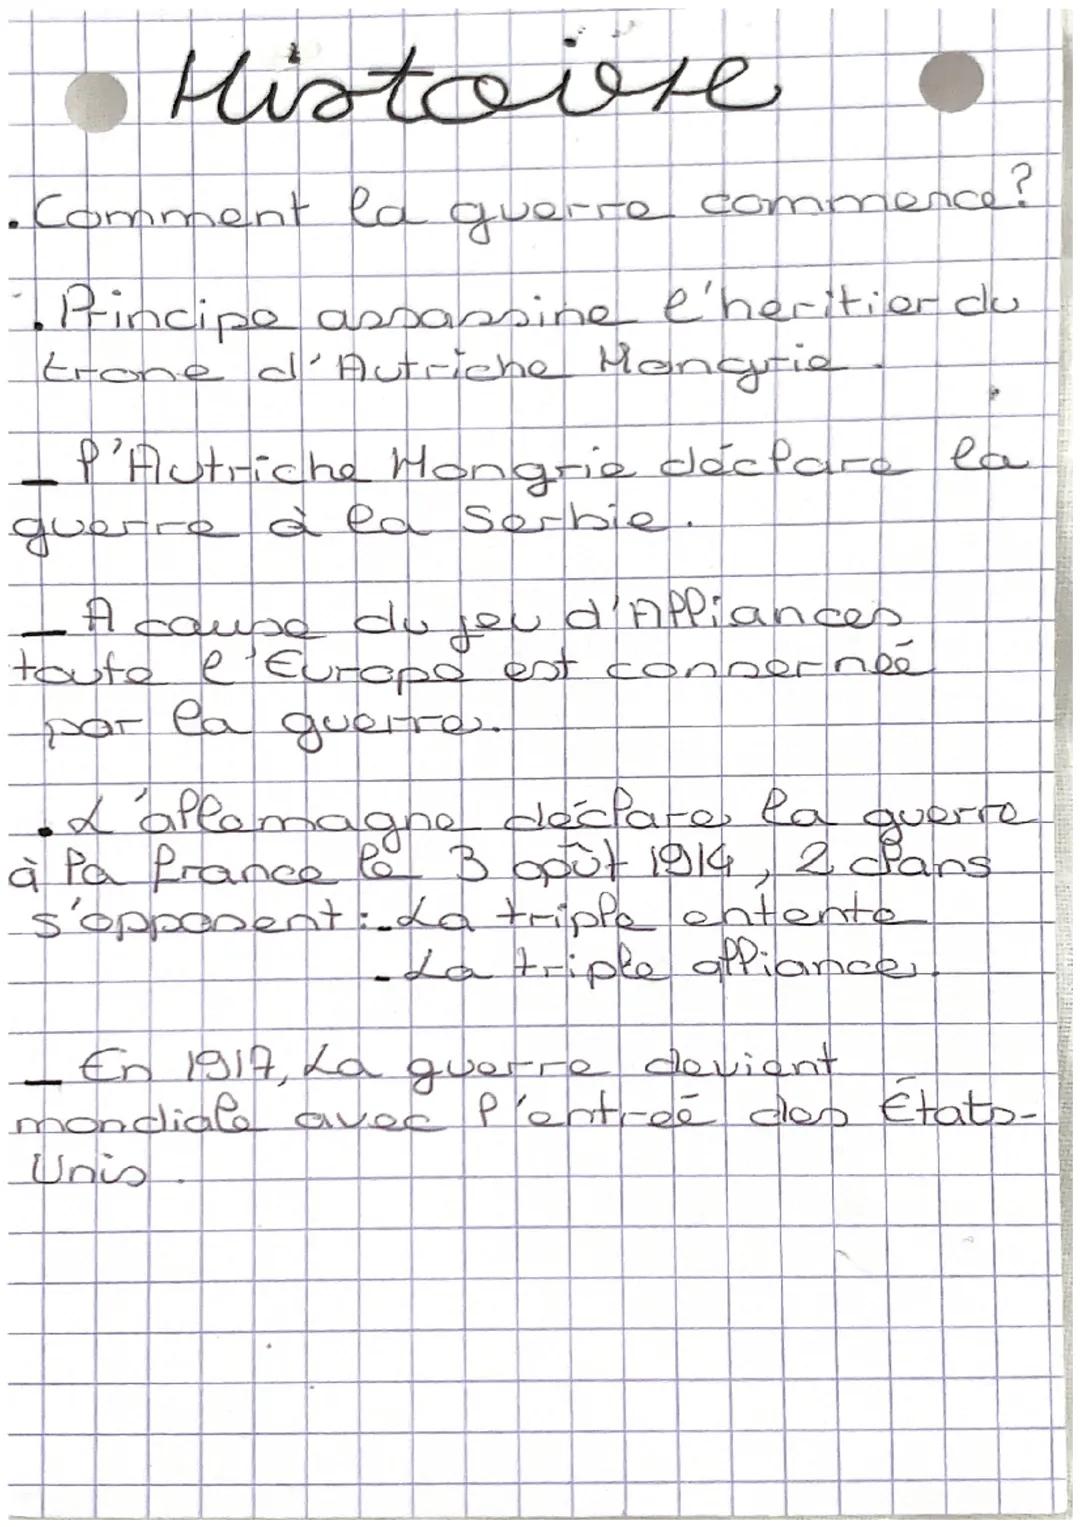 Histoire
. Comment la guerre commence?
. Principe assassine l'heritier du
trone d'Autriche Hongrie.
_ l'Autriche Hongrie déclare la
guerre à la Serbie.
_ A cause du jeu d'Alliances
toute l'Europe est conserneé
par la guerre.
. L'allemagne déclare la guerre
à la france le 3 août 1914, 2 clans
s'opposent: - La triple entente
- La triple alliance.
_ En 1917, La guerre devient
mondiale avec l'entreé des États-
Unis.